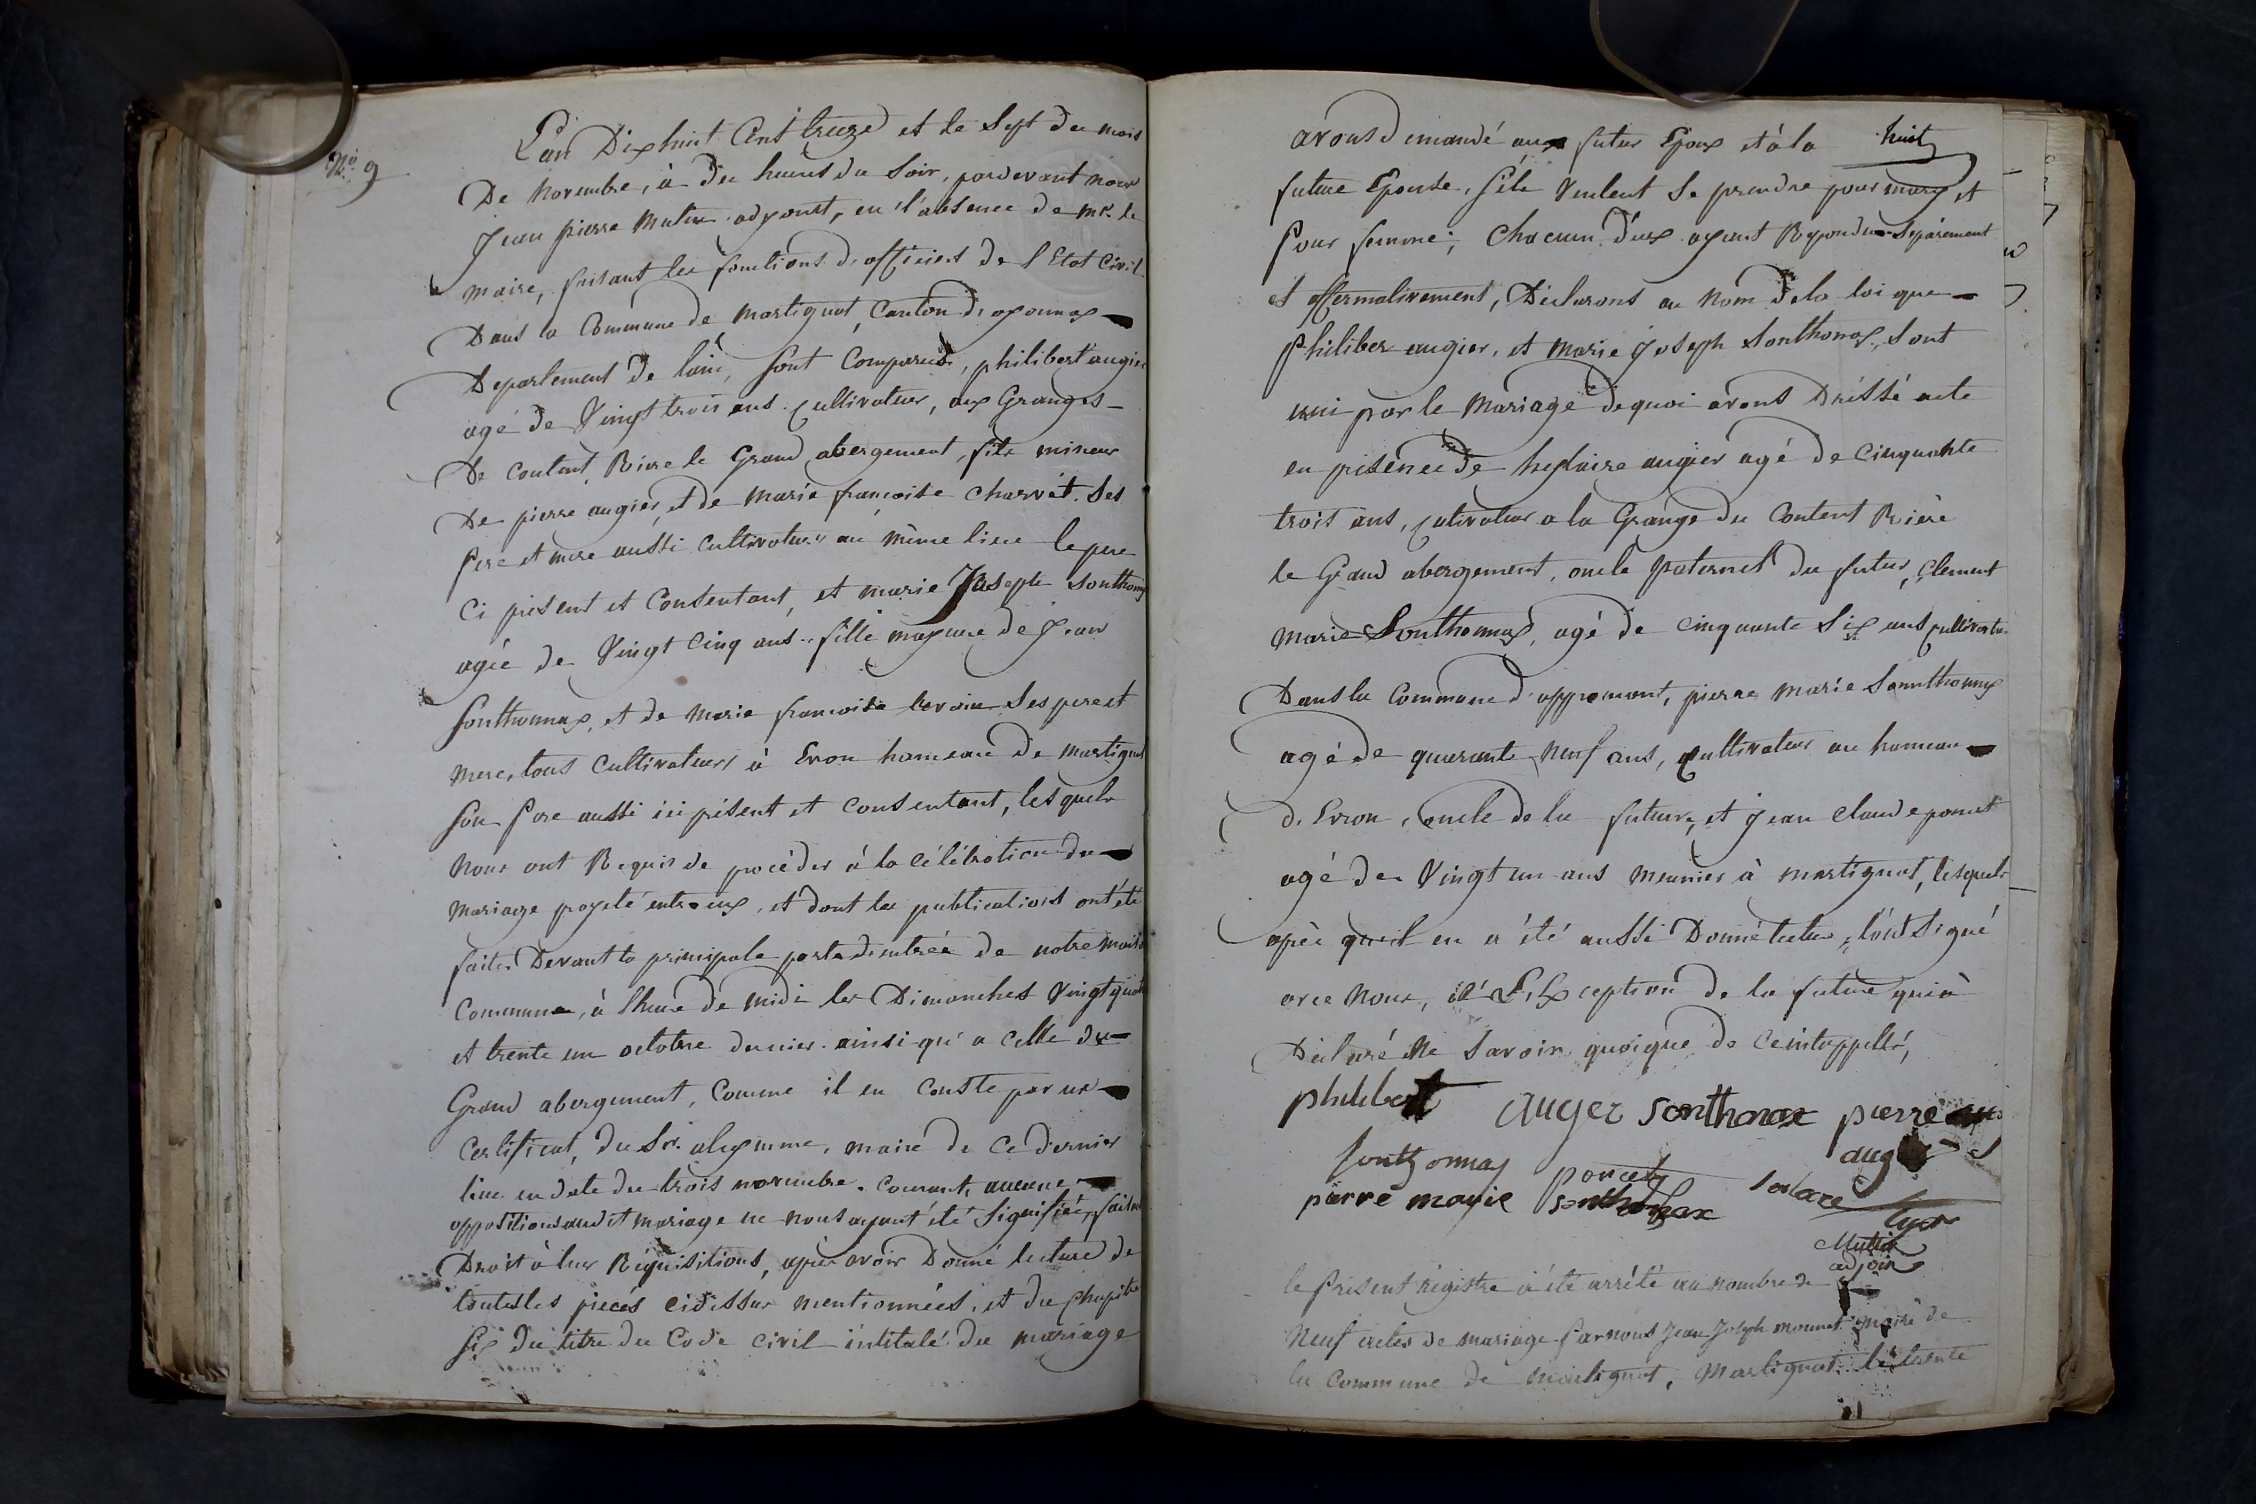 No. 9
L'an Dix huit Cent treize et le Sept du mois
De Novembre, à Dix heures du Soir, pardevant nous
Jean pierre Mutin adjoint, en l'absence de Mr. le
maire, faisant les fonctions d'officiers de l'Etat Civil
Dans la Commune de Martignat, Canton d'oyonnax
Departement de l'ain, Sont Comparus, philibert augier
agé de Vingt trois ans cultivateur, aux Granges
De Content, Riere le Grand abergement, fils mineur
De pierre augier, et de Marie françoise Charvet. Ses
Pere et mere aussi Cultivateurs au même lieu le pere
Ci présent et Consentant, et marie Joseph Sonthonax
agée de Vingt Cinq ans fille majeure de Jean
Sonthonnax, et de Marie françoise Ses pere et
mere, tous Cultivateurs à Evron hameau de Martignat
Son Pere aussi ici présent et Consentant, lesquels
Nous ont Requis de procéder à la célébration du
Mariage projeté entr'eux, et dont les publications ont été
faites Devant la principale porte d'entrée de notre maison
Commune, à l'heure de midi les Dimanches Vingt quatre
et trente un octobre dernier ainsi qu'a Celle du
Grand abergement, Comme il en Conste par un
Certificat, du Sr. maire de Ce dernier
lieu en date du trois novembre. Courant, aucune
oppositions audit mariage ne nous ayant été Signifiée, faisant
Droit à leur Réquisitions, après avoir Donné lecture de
toutes les pieces cidessus mentionnées, et du Chapitre
Six du titre du Code civil intitulé du mariage
huit
avons demandé aux futur Epoux et à la
future Epouse, S'ils Veulent Se prendre pour mary et
Pour femme; Chacun d'eux ayant Répondu Séparement
et affermativement, Déclarons au Nom de la loi que
Philiber augier, et Marie Joseph Sonthonax, Sont
uni par le Mariage dequoi avons Dréssé acte
en présence de hyslaire augier agé de Cinquante
trois ans, cutivateur a la Grange du Content Riere
le Grand abergement, oncle paternel du futur, Clement
Marie Sonthonnax, agé de cinquante Six ans cultivateur
Dans la Commune d'appremont, pierre Marie Sonnthonnax
agé de quarante Neuf ans, Cultivateur au hameau
d'Evron, oncle de la future, et Jean Claude poncet
agé de Vingt un ans Meunier à Martignat, lesquels
après qu'il en a été aussi Donné lecture, l'ont Signé
avec Nous, à L'Exception de la future qui a
Déclaré Ne Savoir quoique de Ce interppellé,
philibert auger sonthonax pierre
Sonthonnax poncet auger
pierre marie sonthonax
Mutin
adjoin
le Présent régistre a été arrété au nombre de
Neuf actes de mariage Parnous Jean Joseph monnet maire de
la Commune de Martignat, Martignat le trente